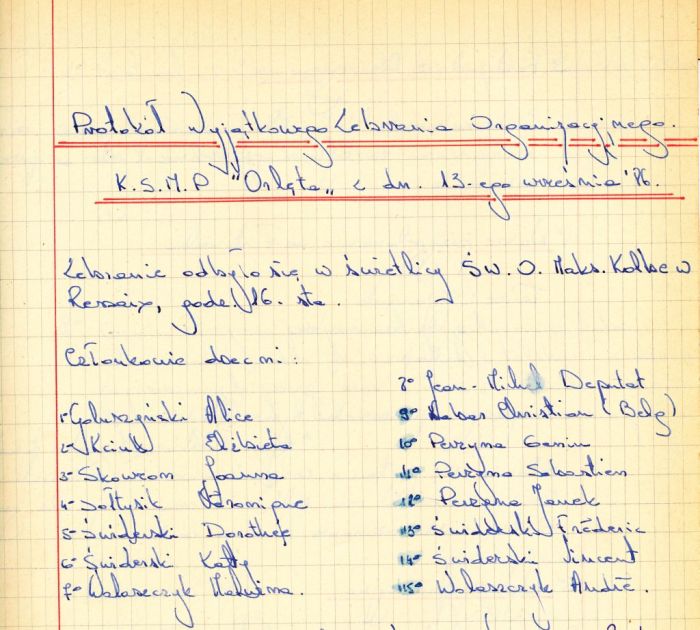 Protokół Wyjątkowego Zebrania Organizacyjnego.
K.S.M.P "Orlęta" z dn. 13-ego września '86.
Zebranie odbyło się w świetlicy Św. O. Maks. Kolbe w
Ressaix, godz. 16. sta.
Członkowie obecni:
1° Galuszyński Alice
2° Kciuk Elżbieta
3° Skowron Joanna
4° Sołtysik Véronique
5° Świderski Dorothée
6° Świderski Katty
7° Walaszczyk Malwina.
8° Jean-Michel Deputat
9° Christian (Belg)
10° Peryma
11° Peryma Sebastien
12° Peryma Janek
13° Świderski Fréderic
14° Świderski Vincent
15° Walaszczyk André.